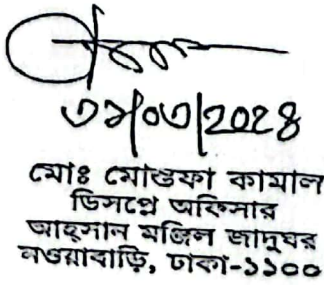 ৩১/০৩/2024
মোঃ মোস্তফা কামাল
ডিসপ্লে অফিসার
আহসান মঞ্জিল জাদুঘর
নওয়াবাড়ি, ঢাকা-১১০০